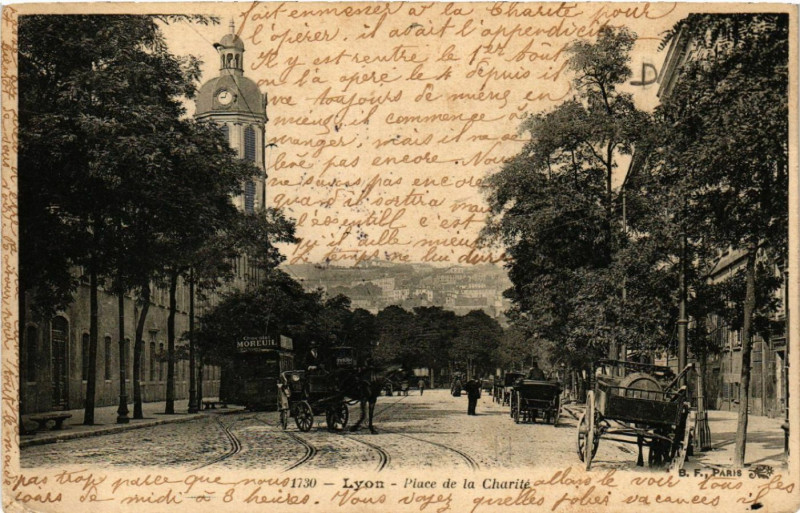 fait emmener à la Charité pour
l'opérer, il avait l'appendicite
Il y est rentré le 1er Aout
on l'a opéré le 4 depuis il
va toujours de mieux en
mieux il commence à
manger, mais il ne se
lève pas encore. Nous
ne savons pas encore
quand il sortira mais
l'essentiel c'est
qu'il aille mieux
le temps ne lui dure
D
Chocolat
MOREUIL
pas trop parce que nous allons le voir tous les
jours de midi à 3 heures. Vous voyez quelles jolies vacances
1730 - Lyon - Place de la Charité
B. F., PARIS